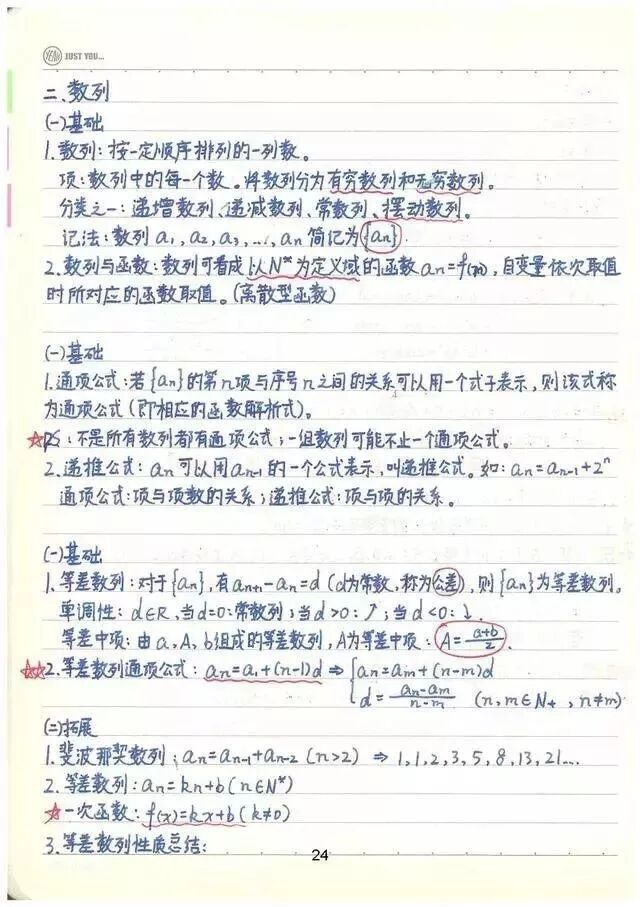 YEAH JUST YOU...
二、数列
(一)基础
1.数列:按一定顺序排列的一列数。
项:数列中的每一个数。将数列分为有穷数列和无穷数列。
分类之一:递增数列、递减数列、常数列、摆动数列。
记法:数列a₁,a₂,a₃,...,aₙ简记为{aₙ}
2.数列与函数:数列可看成以N*为定义域的函数aₙ=f(n),自变量依次取值
时所对应的函数取值。(离散型函数)
(一)基础
1.通项公式:若{aₙ}的第n项与序号n之间的关系可以用一个式子表示,则该式称
为通项公式(即相应的函数解析式)。
☆PS:不是所有数列都有通项公式;一组数列可能不止一个通项公式。
2.递推公式:aₙ可以用aₙ₋₁的一个公式表示,叫递推公式。如:aₙ=aₙ₋₁+2ⁿ
通项公式:项与项数的关系;递推公式:项与项的关系。
(一)基础
1.等差数列:对于{aₙ},有aₙ₊₁-aₙ=d(d为常数,称为公差),则{aₙ}为等差数列。
单调性:d∈R,当d=0:常数列;当d>0:↑;当d<0:↓.
等差中项:由a,A,b组成的等差数列,A为等差中项:A=(a+b)/2.
☆☆2.等差数列通项公式:aₙ=a₁+(n-1)d ⇒ {aₙ=aₘ+(n-m)d
d=(aₙ-aₘ)/(n-m) (n,m∈N₊,n≠m)
(二)拓展
1.斐波那契数列:aₙ=aₙ₋₁+aₙ₋₂(n>2) ⇒ 1,1,2,3,5,8,13,21...
2.等差数列:aₙ=kn+b(n∈N*)
☆一次函数:f(x)=kx+b(k≠0)
3.等差数列性质总结:
24